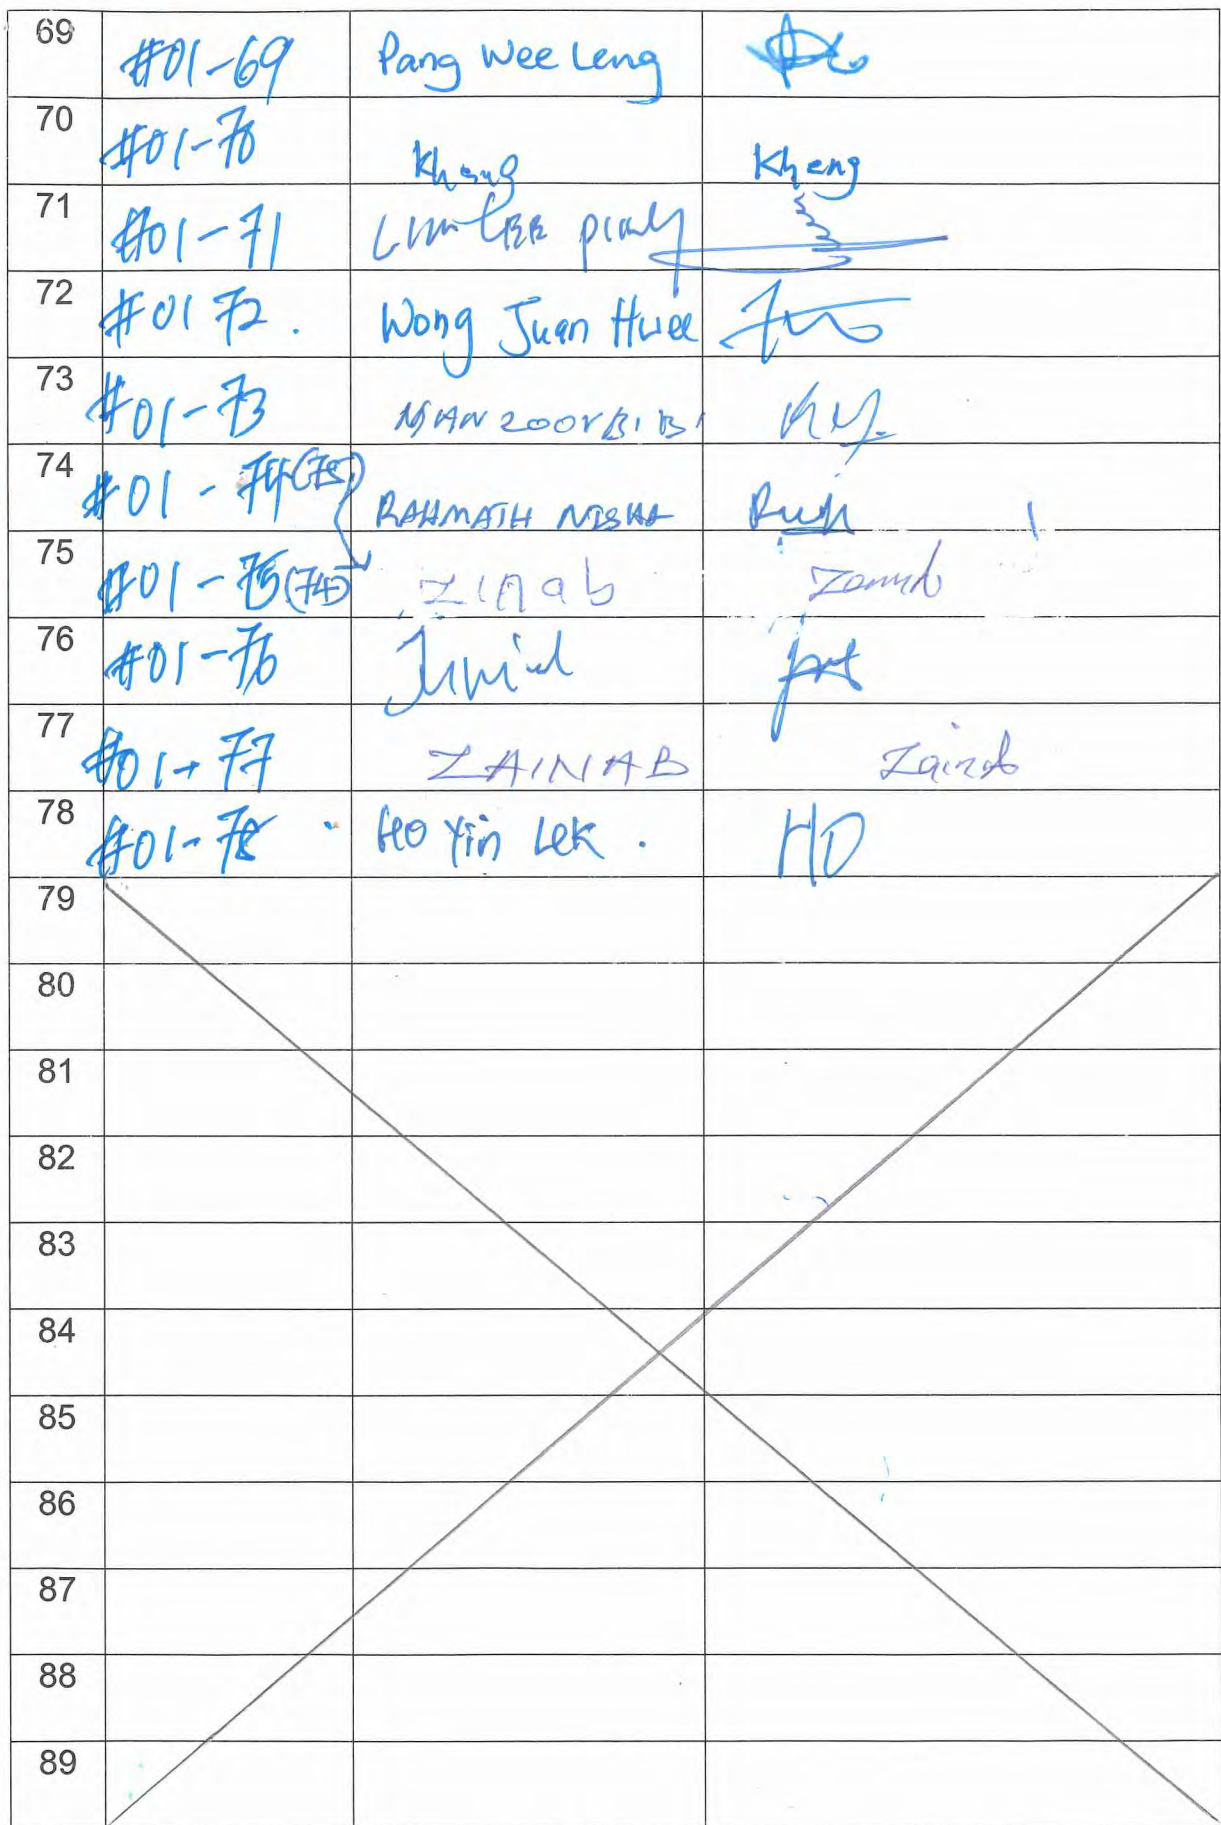 69 #01-69 Pang Wee Leng
70 #01-70 Kheng Kheng
71 #01-71 Lim
72 #01 72. Wong Juan Hwee
73 #01-73 MANZOOR BIBI
74 #01 - 74 (75) RAHMATH NISHA
75 #01 - 75 (74) ZINab
76 #01-76
77 #01-77 ZAINAB Zainab
78 #01-78 HO Yin Lek. HO
79
80
81
82
83
84
85
86
87
88
89